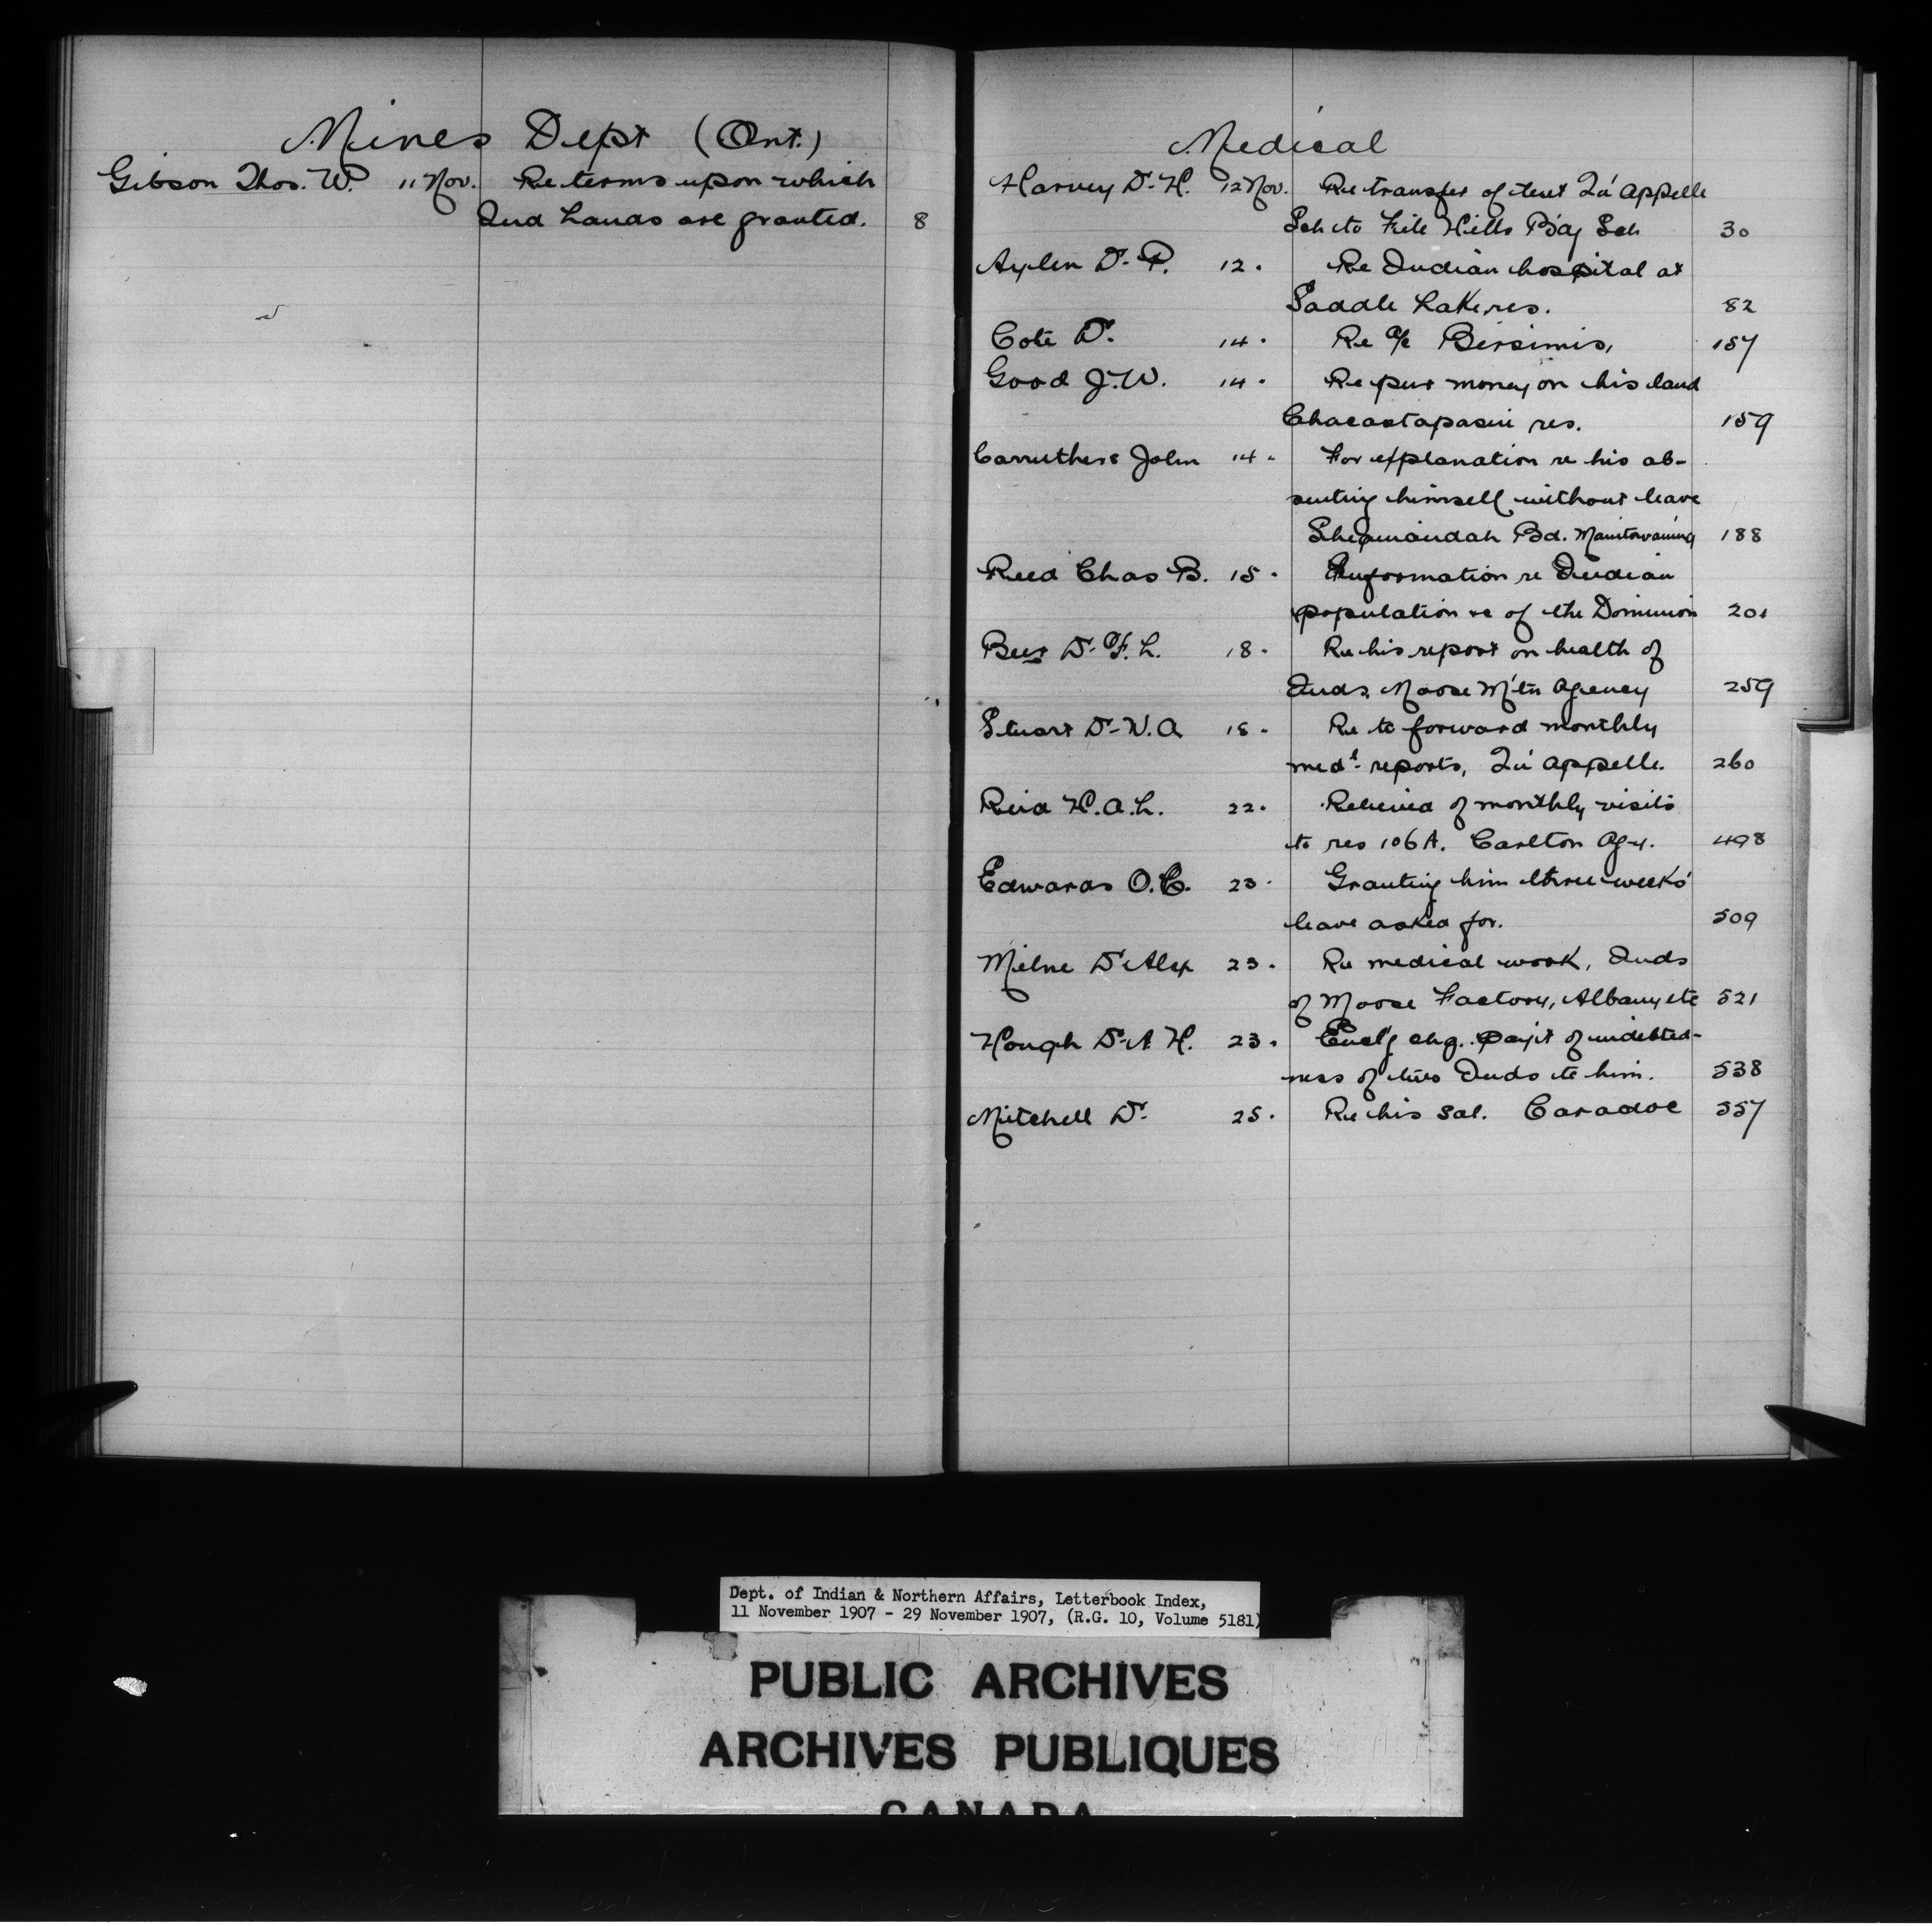 Mines Dept (Ont.)
Gibson Thos. W. 11 Nov. Re terms upon which
Ind Lands are granted. 8
Medical
Harvey Dr. H. 12 Nov. Re transfer of tent Qu'Appelle
Sch to File Hills B'd'g Sch 30
Aylen Dr. P. 12. Re Indian hospital at
Saddle Lake res. 82
Cote Dr. 14. Re a/c Bersimis, 157
Good J. W. 14. Re pur money on his land
Chacastapasin res. 159
Carruthers John 14. For explanation re his ab-
senting himself without leave
Sheguiandah Bd. Manitowaning 188
Reed Chas B. 15. Information re Indian
population &c of the Dominion 201
Beer Dr. F. L. 18. Re his report on health of
Inds. Moose M'tn Agency 259
Stuart Dr. W. A 18. Re to forward monthly
medl. reports, Qu'Appelle. 260
Reid H. A. L. 22. Relieved of monthly visits
to res 106A. Carlton Agy. 498
Edwards O. C. 23. Granting him three weeks'
leave asked for. 509
Milne Dr Alex 23. Re medical work, Inds
of Moose Factory, Albany etc 521
Hough Dr. A H. 23. Encl'g chq. pay't of indebted-
ness of two Inds to him. 538
Mitchell Dr. 25. Re his sal. Caradoc 557
Dept. of Indian & Northern Affairs, Letterbook Index,
11 November 1907 - 29 November 1907, (R.G. 10, Volume 5181)
PUBLIC ARCHIVES
ARCHIVES PUBLIQUES
CANADA